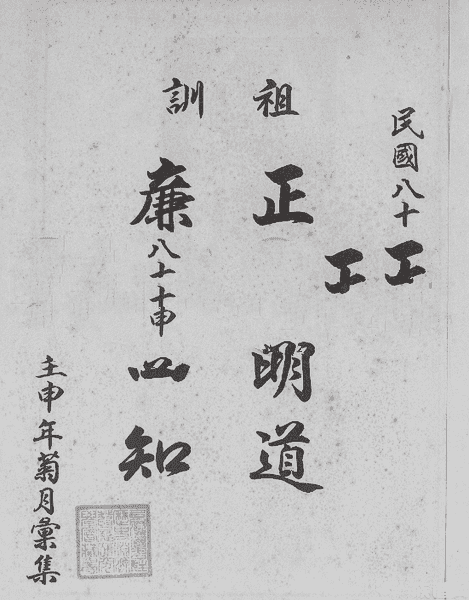 民國八十工
工
祖正明道
訓廉八十十申心知
壬申年菊月彙集